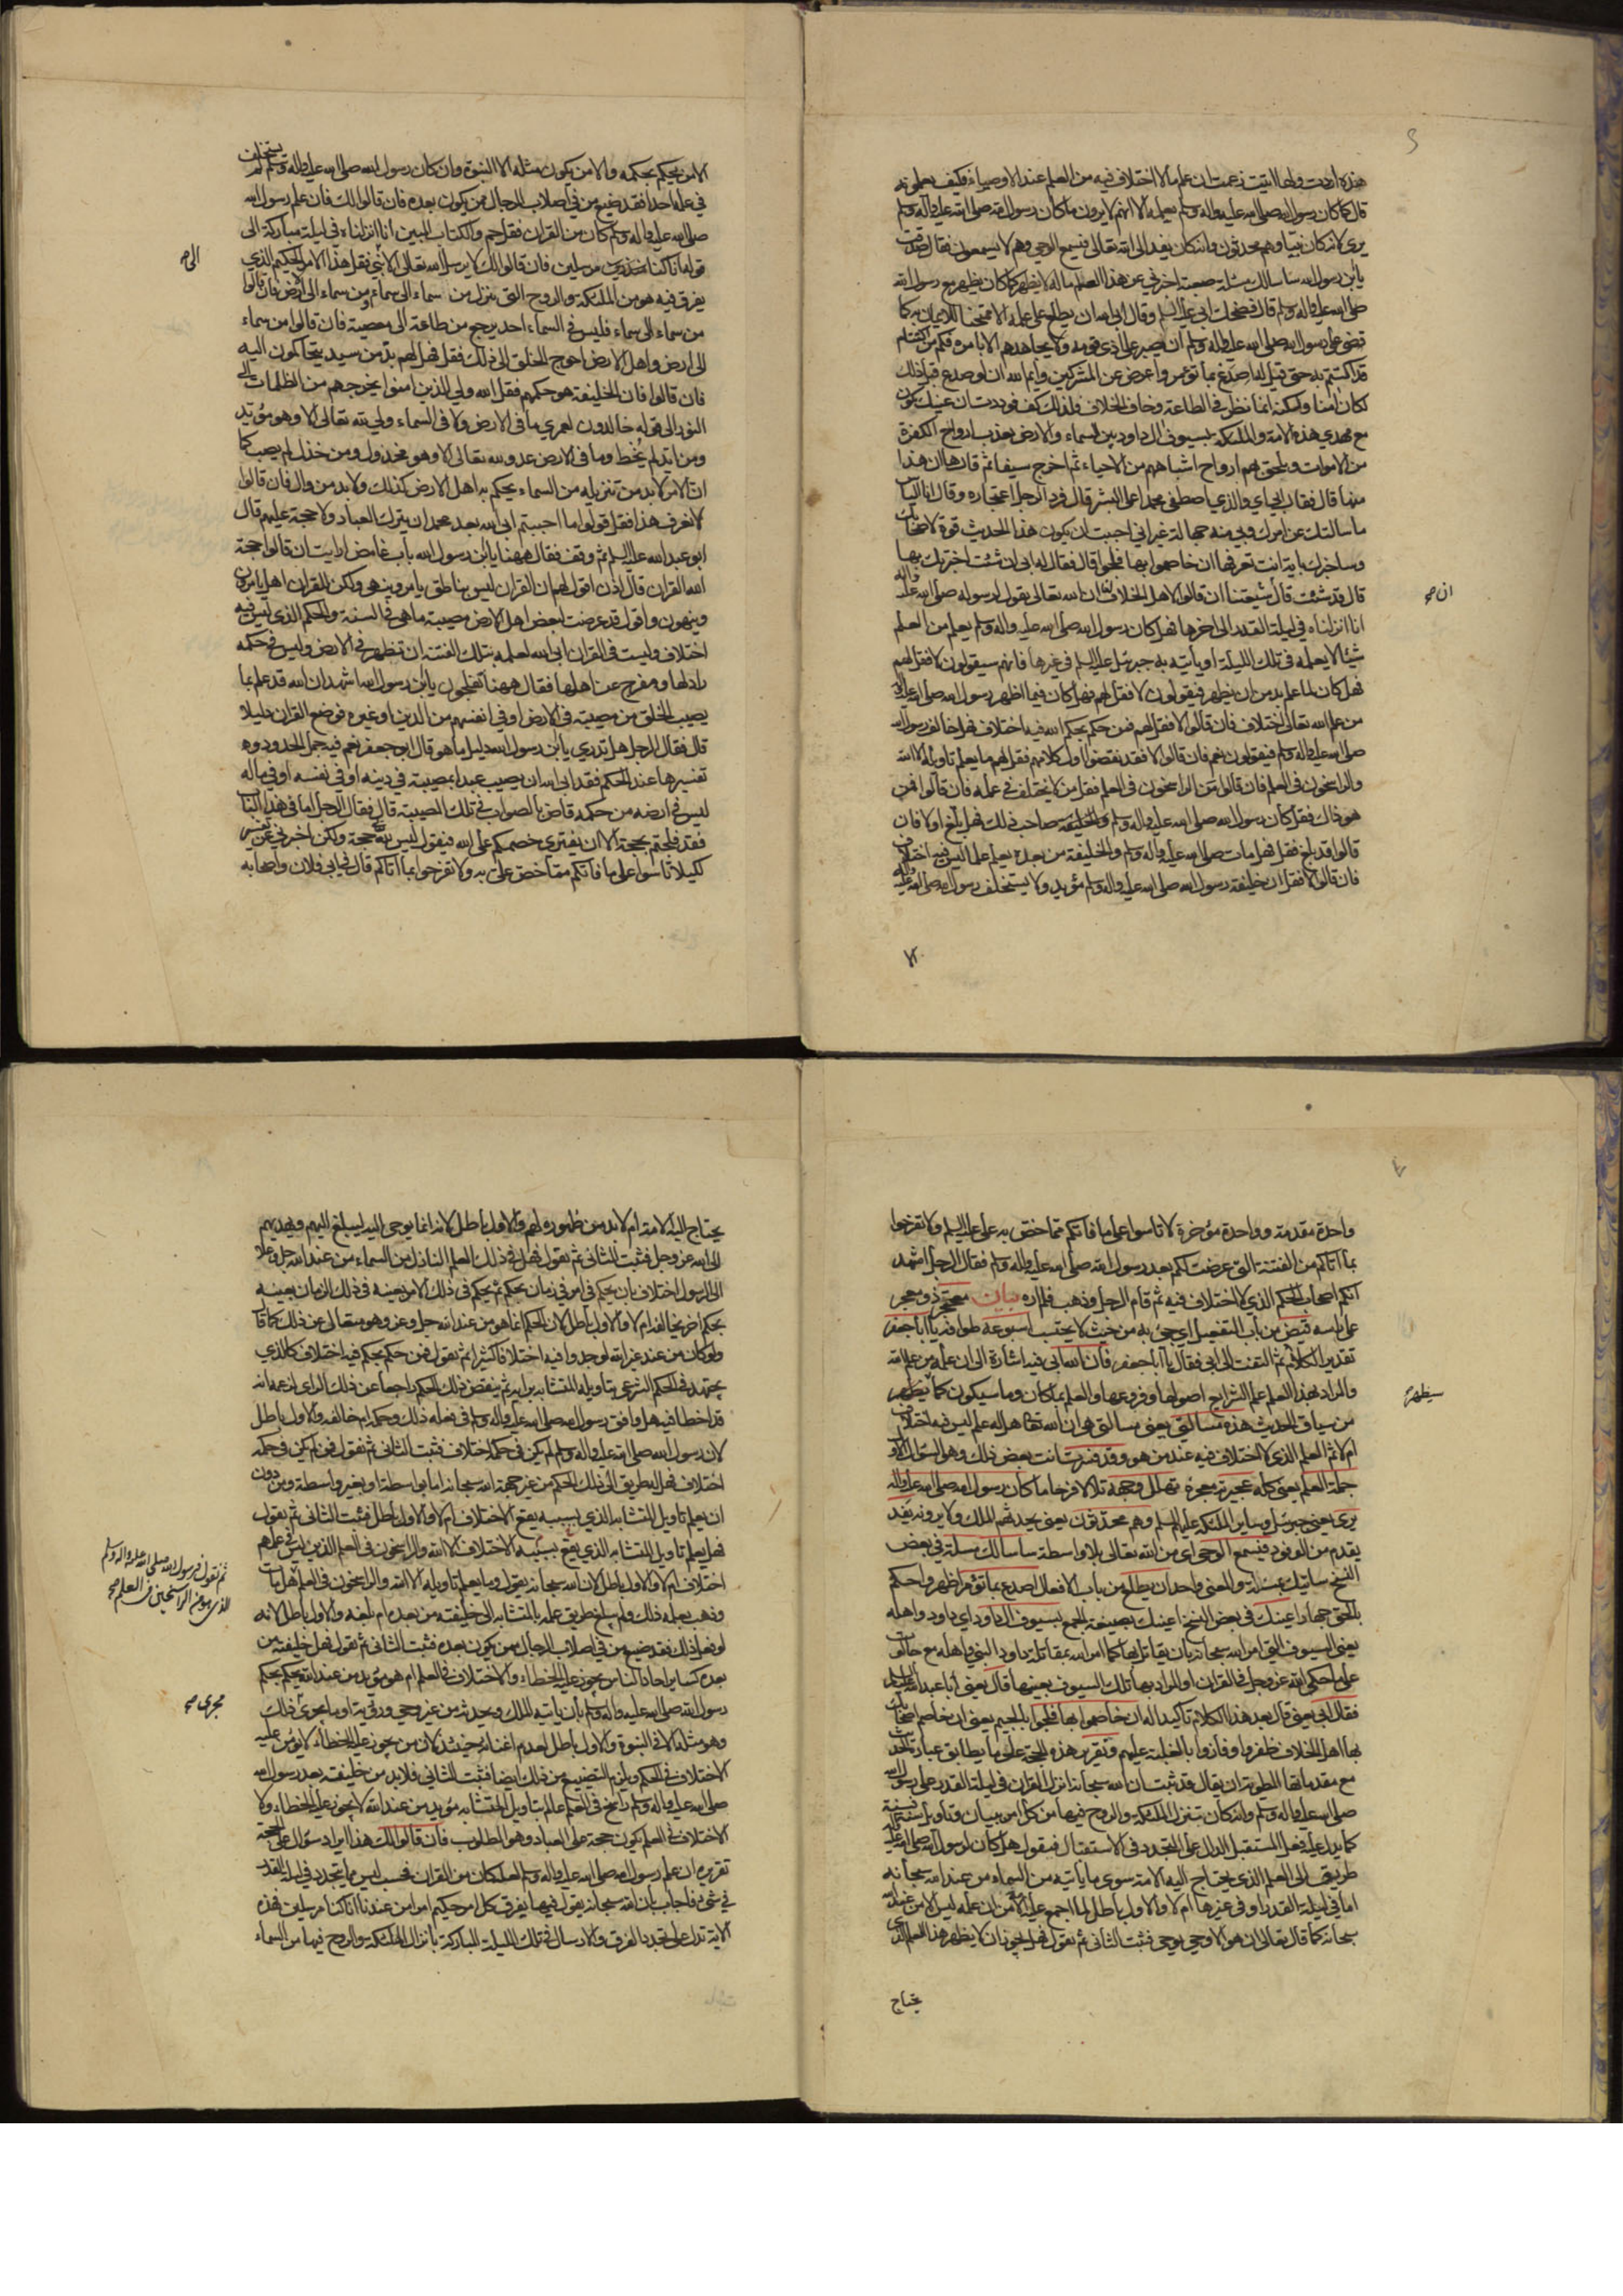 هذه اردت ولها اتيت زعمت ان علم ما لا اختلاف فيه من العلم عند الاوصياء فكيف يعلمونه
قال كما كان رسول الله صلى الله عليه واله وسلم يعلمه الا انهم لا يرون ما كان رسول الله صلى الله عليه واله وسلم
يرى لانه كان نبيا وهم محدثون وانه كان يفد الى الله تعالى فيسمع الوحي وهم لا يسمعون فقال صدقت
يابن رسول الله ساسالك مسئلة صعبة اخبرني عن هذا العلم ماله لا يظهر كما كان يظهر مع رسول الله
صلى الله عليه واله وسلم قال فضحك ابي عليه السلم وقال ابى الله ان يطلع على علمه الا ممتحنا للايمان به كما
قضى على رسول الله صلى الله عليه واله وسلم ان يصبر على اذى قومه ولا يجاهدهم الا بامره فكم من اكتتام
قد اكتتم به حتى قيل له اصدع بما تؤمر واعرض عن المشركين وايم الله ان لو صدع قبل ذلك
لكان امنا ولكنه انما نظر في الطاعة وخاف الخلاف فلذلك كف فوددت ان عينك تكون
مع مهدي هذه الامة والملئكة بسيوف ال داود بين السماء والارض يعذب ارواح الكفرة
من الاموات ويلحق بهم ارواح اشباههم من الاحياء ثم اخرج سيفا ثم قال ها ان هذا
منها قال فقال ابي اي والذي اصطفى محمدا على البشر قال فرد الرجل اعتجاره وقال انا الياس
ما سالتك عن امرك وبي منه جهالة غير اني احببت ان يكون هذا الحديث قوة لاصحابك
وساخبرك باية انت تعرفها ان خاصموا بها فلجوا قال فقال له ابي ان شئت اخبرتك بها
قال قد شئت قال ان شيعتنا ان قالوا لاهل الخلاف لنا ان الله تعالى يقول لرسوله صلى الله عليه واله
ان صح
انا انزلناه في ليلة القدر الى اخرها فهل كان رسول الله صلى الله عليه واله وسلم يعلم من العلم
شيئا لا يعلمه في تلك الليلة او ياتيه به جبرئيل عليه السلم في غيرها فانهم سيقولون لا فقل لهم
فهل كان لما علم بد من ان يظهر فيقولون لا فقل لهم فهل كان فيما اظهر رسول الله صلى الله عليه واله
من علم الله تعالى اختلاف فان قالوا لا فقل لهم فمن حكم بحكم الله فيه اختلاف فهل خالف رسول الله
صلى الله عليه واله وسلم فيقولون نعم فان قالوا لا فقد نقضوا اول كلامهم فقل لهم ما يعلم تاويله الا الله
والراسخون في العلم فان قالوا من الراسخون في العلم فقل من لا يختلف في علمه فان قالوا فمن
هو ذاك فقل كان رسول الله صلى الله عليه واله وسلم صاحب ذلك فهل بلغ او لا فان
قالوا قد بلغ فقل فهل مات صلى الله عليه واله وسلم والخليفة من بعده يعلم علما ليس فيه اختلاف
فان قالوا لا فقل ان خليفة رسول الله صلى الله عليه واله وسلم مؤيد ولا يستخلف رسول الله صلى الله عليه واله
الا من يحكم بحكمه والا من يكون مثله الا النبوة وان كان رسول الله صلى الله عليه واله وسلم لم يستخلف
في علمه احدا فقد ضيع من في اصلاب الرجال ممن يكون بعده فان قالوا لك فان علم رسول الله
صلى الله عليه واله وسلم كان من القران فقل حم والكتاب المبين انا انزلناه في ليلة مباركة الى
قوله انا كنا مرسلين فان قالوا لك لا يرسل الله تعالى الا نبي فقل هذا الامر الحكيم الذي
الى صح
يفرق فيه هو من الملئكة والروح التي تنزل من سماء الى سماء ومن سماء الى الارض فان قالوا
من سماء الى سماء فليس في السماء احد يرجع من طاعة الى معصية فان قالوا من سماء
الى ارض واهل الارض احوج الخلق الى ذلك فقل فهل لهم بد من سيد يتحاكمون اليه
فان قالوا فان الخليفة هو حكمهم فقل الله ولي الذين امنوا يخرجهم من الظلمات الى
النور الى قوله خالدون لعمري ما في الارض ولا في السماء ولي لله تعالى الا وهو مؤيد
ومن ايد لم يخط وما في الارض عدو لله تعالى الا وهو مخذول ومن خذل لم يصب كما
ان الامر لابد من تنزيله من السماء يحكم به اهل الارض كذلك ولابد من وال فان قالوا
لا نعرف هذا فقل قولوا ما احببتم ابى الله بعد محمد ان يترك العباد ولا حجة عليهم قال
ابو عبد الله عليه السلم ثم وقف فقال ههنا يابن رسول الله باب غامض ارايت ان قالوا حجة
الله القران قال اذن اقول لهم ان القران ليس بناطق يامر وينهى ولكن للقران اهل يامرون
وينهون واقول قد عرضت لبعض اهل الارض مصيبة ما هي في السنة والحكم الذي ليس فيه
اختلاف وليست في القران ابى الله لعلمه بتلك الفتنة ان تظهر في الارض وليس في حكمه
راد لها ومفرج عن اهلها فقال ههنا تفلجون يابن رسول الله اشهد ان الله قد علم بما
يصيب الخلق من مصيبة في الارض او في انفسهم من الدين او غيره فوضع القران دليلا
قال فقال الرجل هل تدري يابن رسول الله دليل ما هو قال ابو جعفر نعم فيه جمل الحدود
تفسيرها عند الحكم فقد ابى الله ان يصيب عبدا بمصيبة في دينه او في نفسه او في ماله
ليس في ارضه من حكمه قاض بالصواب في تلك المصيبة قال فقال الرجل اما في هذا الباب
فقد فلجتم بحجة الا ان يفتري خصمكم على الله فيقول ليس لله حجة ولكن اخبرني عن تفسير
لكيلا تاسوا على ما فاتكم مما خص علي به ولا تفرحوا بما اتاكم قال في ابي فلان واصحابه
واحدة مقدمة وواحدة مؤخرة لا تاسوا على ما فاتكم مما خص به علي عليه السلم ولا تفرحوا
بما اتاكم من الفتنة التي عرضت لكم بعد رسول الله صلى الله عليه واله وسلم فقال الرجل اشهد
انكم اصحاب الحكم الذي لا اختلاف فيه ثم قام الرجل وذهب فلم اره بيان معتجر ذو معجر
على راسه قيض من باب التفعيل اي جئ به من حيث لا يحتسب اسبوعه طوافه يا ابا جعفر
تقدير الكلام ثم التفت الى ابي فقال يا ابا جعفر فان الله ابى فيه اشارة الى ان علمه من علم الله
والمراد بهذا العلم علم الشرايع اصولها وفروعها والعلم بما كان وما سيكون كما يظهر
سيظهر صح
من سياق الحديث هذه مسالتي يعني مسالتي هي ان الله تعالى هل له علم ليس فيه اختلاف
ام لا ثم العلم الذي لا اختلاف فيه عند من هو وقد فسرت انت بعض ذلك وهو السؤال الاول
جملة العلم يعني كله عجيرته معجره تهلل وجهه تلالا فرحا ما كان رسول الله صلى الله عليه واله
يرى يعني جبرئيل وساير الملئكة عليهم السلم وهم محدثون يعني يحدثهم الملك ولا يرونه يفد
يقدم من الوفود فيسمع الوحي اي من الله تعالى بلا واسطة ساسالك مسئلة في بعض
النسخ ساتيك بمسئلة والمعنى واحد ان يطلع من باب الافعال اصدع بما تؤمر اظهر واحكم
بالحق جهارا عينك في بعض النسخ اعينك بصيغة الجمع بسيوف ال داود اي داود واهله
يعني السيوف التي امر الله سبحانه بان يقاتل بها كما امر الله بمقاتلة داود النبي واهله مع جالوت
على ما حكى الله عز وجل في القران او المراد بها تلك السيوف بعينها قال يعني ابا عبد الله عليه السلم
فقال ابي يعني قال بعد هذا الكلام تاكيدا له ان خاصموا بها فلجوا بالجيم يعني ان خاصم اصحابك
بها اهل الخلاف ظفروا وفازوا بالغلبة عليهم وتقرير هذه الحجة على ما يطابق عبارة الحديث
مع مقدماتها المطوية ان يقال قد ثبت ان الله سبحانه انزل القران في ليلة القدر على رسول الله
صلى الله عليه واله وسلم وانه كان تتنزل الملئكة والروح فيها من كل امر ببيان وتاويل سنة فسنة
كما يدل عليه فعل المستقبل الدال على التجدد في الاستقبال فنقول هل كان لرسول الله صلى الله عليه واله
طريق الى العلم الذي يحتاج اليه الامة سوى ما ياتيه من السماء من عند الله سبحانه
اما في ليلة القدر او في غيرها ام لا والاول باطل لما اجمع عليه الامة من ان علمه ليس الا من عند الله
سبحانه كما قال تعالى ان هو الا وحي يوحى فثبت الثاني ثم نقول فهل يجوز ان لا يظهر هذا العلم الذي
يحتاج
يحتاج اليه الامة ام لابد من ظهوره لهم والاول باطل لانه انما يوحى اليه ليبلغ اليهم ويهديهم
الى الله عز وجل فثبت الثاني ثم نقول فهل في ذلك العلم النازل من السماء من عند الله جل وعلا
الى الرسول اختلاف بان يحكم في امر في زمان بحكم ثم يحكم في ذلك الامر بعينه في ذلك الزمان بعينه
بحكم اخر يخالفه ام لا والاول باطل لان الحكم انما هو من عند الله جل وعز وهو متعال عن ذلك كما قال
ولو كان من عند غير الله لوجدوا فيه اختلافا كثيرا ثم نقول فمن حكم بحكم فيه اختلاف كالذي
يجتهد في الحكم الشرعي بتاويله المتشابه برايه ثم ينقض ذلك الحكم راجعا عن ذلك الراي لزعمه انه
قد اخطا فيه هل وافق رسول الله صلى الله عليه واله وسلم في فعله ذلك وحكمه ام خالفه والاول باطل
لان رسول الله صلى الله عليه واله وسلم لم يكن في حكمه اختلاف فثبت الثاني ثم نقول فمن لم يكن في حكمه
اختلاف فهل له طريق الى ذلك الحكم من غير جهة الله سبحانه اما بواسطة او بغير واسطة ومن دون
ان يعلم تاويل المتشابه الذي بسببه يقع الاختلاف ام لا والاول باطل فثبت الثاني ثم نقول
فهل يعلم تاويل المتشابه الذي يقع بسببه الاختلاف الا الله والراسخون في العلم الذين ليس في علمهم
اختلاف ام لا والاول باطل لان الله سبحانه يقول وما يعلم تاويله الا الله والراسخون في العلم هل مات
ثم نقول فرسول الله صلى الله عليه واله وسلم
الذي هو من الراسخين في العلم صح
وذهب بعلمه ذلك ولم يبلغ طريق علمه بالمتشابه الى خليفته من بعده ام بلغه والاول باطل لانه
لو فعل ذلك فقد ضيع من في اصلاب الرجال ممن يكون بعده فثبت الثاني ثم نقول فهل خليفته من
بعده كساير احاد الناس يجوز عليه الخطاء والاختلاف في العلم ام هو مؤيد من عند الله يحكم بحكم
رسول الله صلى الله عليه واله وسلم بان ياتيه الملك ويحدثه من غير وحي ورؤية او ما يجري ذلك
مجرى صح
وهو مثله الا في النبوة والاول باطل لعدم اغنائه حينئذ لان من يجوز عليه الخطاء لا يؤمن عليه
الاختلاف في الحكم ويلزم التضييع من ذلك ايضا فثبت الثاني فلابد من خليفة بعد رسول الله
صلى الله عليه واله وسلم راسخ في العلم عالم بتاويل المتشابه مؤيد من عند الله لا يجوز عليه الخطاء ولا
الاختلاف في العلم يكون حجة على العباد وهو المطلوب فان قالوا لك هذا ايراد سؤال على الحجة
تقريره ان علم رسول الله صلى الله عليه واله وسلم لعله كان من القران فحسب ليس مما يتجدد في ليلة القدر
في شئ فاجاب بان الله سبحانه يقول فيها يفرق كل امر حكيم امرا من عندنا انا كنا مرسلين فهذه
الاية تدل على تجدد الفرق والارسال في تلك الليلة المباركة بانزال الملئكة والروح فيها من السماء